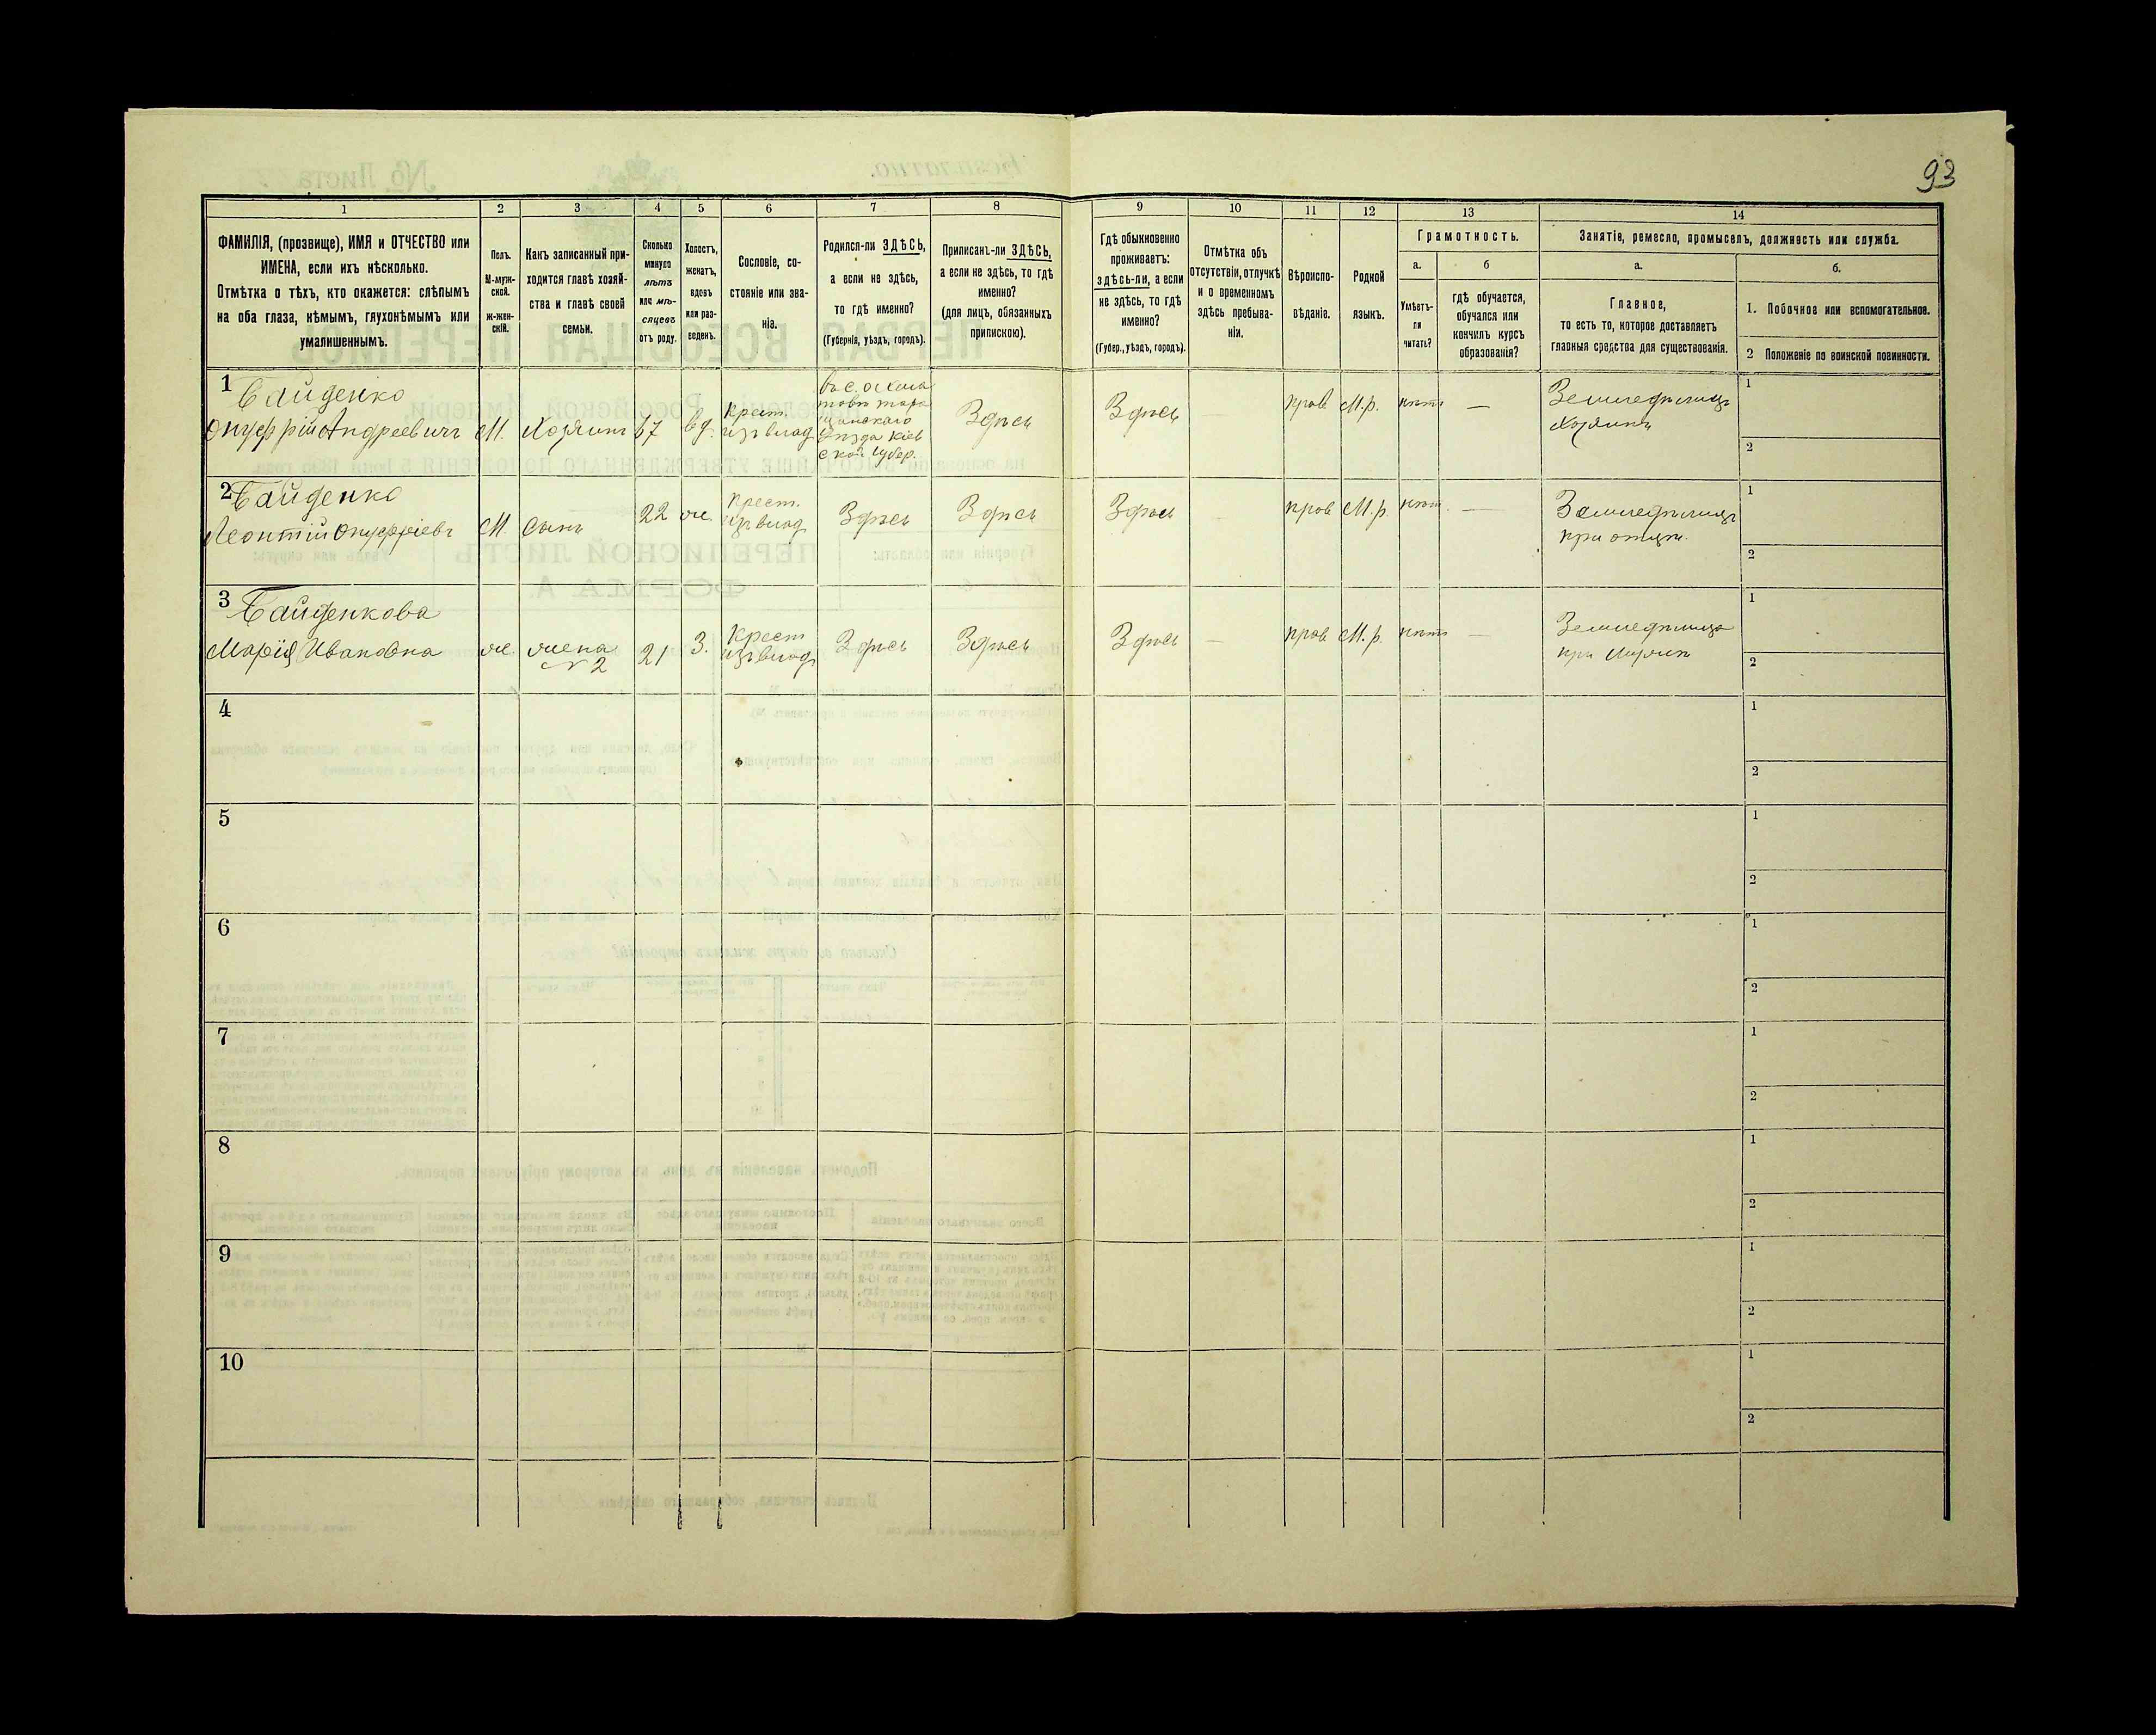 93
1
2
3
4
5
6
7
8
9
10
11
12
13
14
ФАМИЛІЯ, (прозвище), ИМЯ и ОТЧЕСТВО или
ИМЕНА, если ихъ нѣсколько.
Отмѣтка о тѣхъ, кто окажется: слѣпымъ
на оба глаза, нѣмымъ, глухонѣмымъ или
умалишеннымъ.
Полъ.
М-муж-
ской.
ж-жен-
скій.
Какъ записанный при-
ходится главѣ хозяй-
ства и главѣ своей
семьи.
Сколько
минуло
лѣтъ
или мѣ-
сяцевъ
отъ роду.
Холостъ,
женатъ,
вдовъ
или раз-
веденъ.
Сословіе, со-
стояніе или зва-
ніе.
Родился-ли ЗДѢСЬ,
а если не здѣсь,
то гдѣ именно?
(Губернія, уѣздъ, городъ).
Приписанъ-ли ЗДѢСЬ,
а если не здѣсь, то гдѣ
именно?
(для лицъ, обязанныхъ
припискою).
Гдѣ обыкновенно
проживаетъ:
здѣсь-ли, а если
не здѣсь, то гдѣ
именно?
(Губер., уѣздъ, городъ).
Отмѣтка объ
отсутствіи, отлучкѣ
и о временномъ
здѣсь пребыва-
ніи.
Вѣроиспо-
вѣданіе.
Родной
языкъ.
Грамотность.
а.
Умѣетъ-
ли
читать?
б
гдѣ обучается,
обучался или
кончилъ курсъ
образованія?
Занятіе, ремесло, промыселъ, должность или служба.
а.
Главное,
то есть то, которое доставляетъ
главныя средства для существованія.
б.
1. Побочное или вспомогательное.
2 Положеніе по воинской повинности.
1
Байденко
Онуфрій Андреевичъ
М.
Хозяинъ
67
вд.
Крест.
из владѣ
уѣзда Кіев
ской губер.
Здѣсь
Здѣсь
—
прав
М.р.
нѣтъ
—
Земледѣлецъ
Хозяинъ
1
2
2
Байденко
Леонтій Онуфріевъ
М.
Сынъ
22
ж.
Крест.
из влад
Здѣсь
Здѣсь
Здѣсь
—
прав
М.р.
нѣт.
—
Земледѣлецъ
при отцѣ.
1
2
3
Байденкова
Марія Ивановна
ж.
жена
№ 2
21
З.
Крест
из влад
Здѣсь
Здѣсь
Здѣсь
—
прав
М.р.
нѣтъ
—
Земледѣлица
при мужѣ
1
2
4
1
2
5
1
2
6
1
2
7
1
2
8
1
2
9
1
2
10
1
2